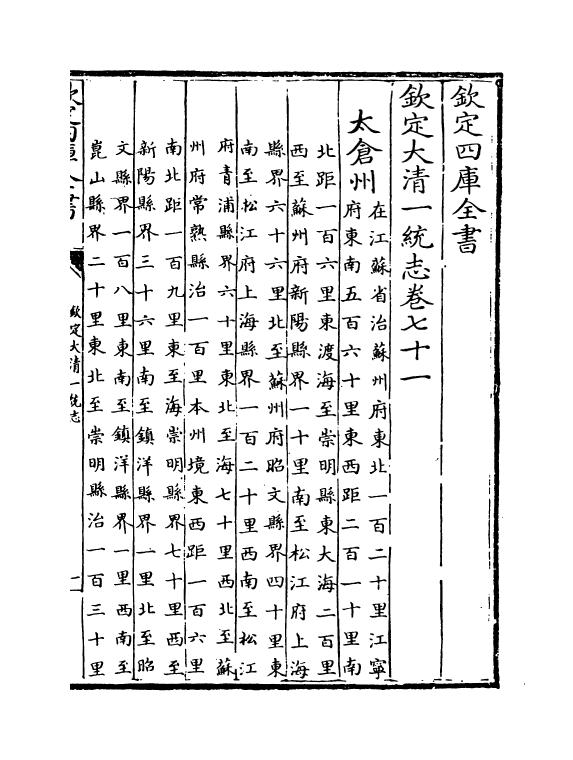 欽定四庫全書
欽定大清一統志卷七十一
太倉州
在江蘇省治蘇州府東北一百二十里江寧
府東南五百六十里東西距二百一十里南
北距一百六里東渡海至崇明縣東大海二百里
西至蘇州府新陽縣界一十里南至松江府上海
縣界六十六里北至蘇州府昭文縣界四十里東
南至松江府上海縣界一百二十里西南至松江
府青浦縣界六十里東北至海七十里西北至蘇
州府常熟縣治一百里本州境東西距一百六里
南北距一百九里東至海崇明縣界七十里西至
新陽縣界三十六里南至鎮洋縣界一里北至昭
文縣界一百八里東南至鎮洋縣界一里西南至
崑山縣界二十里東北至崇明縣治一百三十里
欽定四庫全書
欽定大清一統志